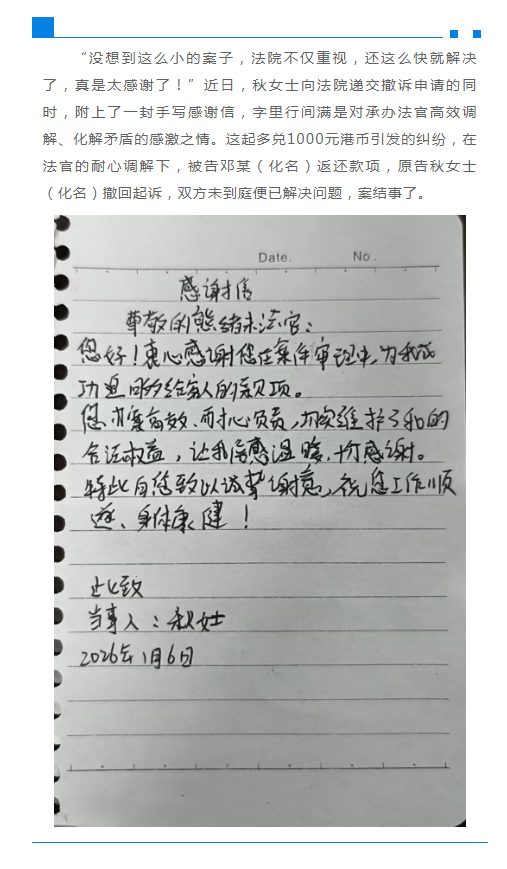 “没想到这么小的案子，法院不仅重视，还这么快就解决
了，真是太感谢了！”近日，秋女士向法院递交撤诉申请的同
时，附上了一封手写感谢信，字里行间满是对承办法官高效调
解、化解矛盾的感激之情。这起多兑1000元港币引发的纠纷，在
法官的耐心调解下，被告邓某（化名）返还款项，原告秋女士
（化名）撤回起诉，双方未到庭便已解决问题，案结事了。
Date. No.
感谢信
尊敬的熊绪未法官：
您好！衷心感谢您在案件审理中，为我成
功追回多给家人的款项。
您办案高效、耐心负责，切实维护了我的
合法权益，让我倍感温暖，十分感谢。
特此向您致以诚挚谢意，祝您工作顺
遂、身体康健！
此致
当事人：秋女士
2026年1月6日